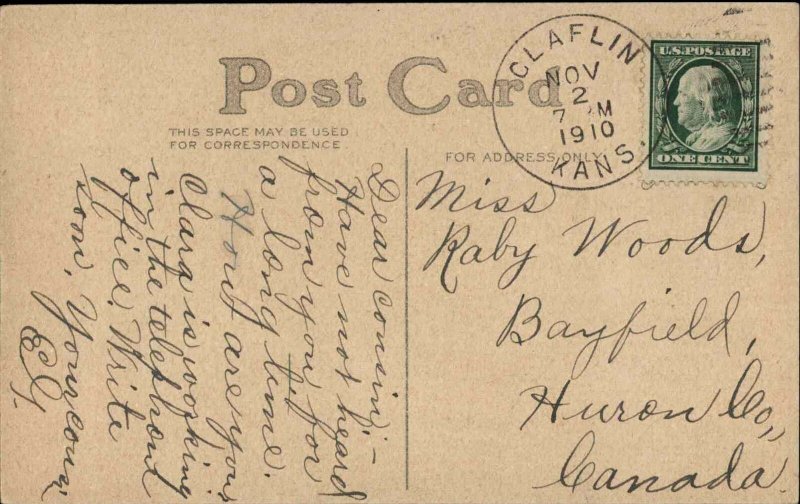 Post Card
THIS SPACE MAY BE USED
FOR CORRESPONDENCE
FOR ADDRESS ONLY
CLAFLIN
NOV
2
7 M
1910
KANS.
U.S. POSTAGE
ONE CENT
Dear cousin:-
Have not heard
from you for
a long time.
How are you
Clara is working
in the telephone
office. Write
soon. Your cousin
E.G.
Miss
Raby Woods,
Bayfield,
Huron Co.,
Canada.